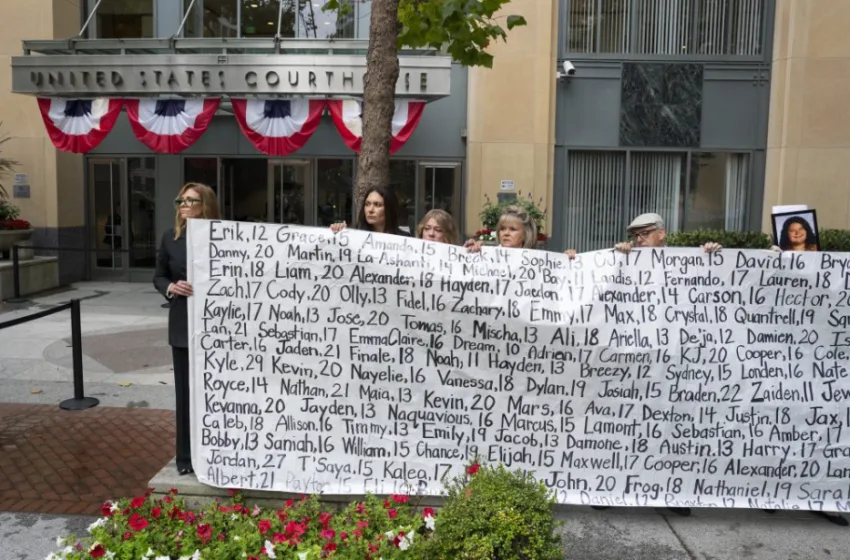 UNITED STATES COURTHOUSE
Erik, 12 Grace, 15 Amanda, 15 Breck, 14 Sophie, 13 CJ, 17 Morgan, 15 David, 16
Danny, 20 Martin, 19 La-Ashanti, 14 Michael, 20 Bay, 11 Landis, 12 Fernando, 17 Lauren, 18
Erin, 18 Liam, 20 Alexander, 18 Hayden, 17 Jaedan, 17 Alexander, 14 Carson, 16 Hector, 20
Zach, 17 Cody, 20 Olly, 13 Fidel, 16 Zachary, 18 Emmy, 17 Max, 18 Crystal, 18 Quantrell, 19
Kaylie, 17 Noah, 13 Jose, 20 Tomas, 16 Mischa, 13 Ali, 18 Ariella, 13 De'ja, 12 Damien, 20
Ian, 21 Sebastian, 17 EmmaClaire, 16 Dream, 10 Adrien, 17 Carmen, 16 KJ, 20 Cooper, 16 Cole,
Carter, 16 Jaden, 21 Finale, 18 Noah, 11 Hayden, 13 Breezy, 12 Sydney, 15 Londen, 16 Nate
Kyle, 29 Kevin, 20 Nayelie, 16 Vanessa, 18 Dylan, 19 Josiah, 15 Braden, 22 Zaiden, 11
Royce, 14 Nathan, 21 Maia, 13 Kevin, 20 Mars, 16 Ava, 17 Dexton, 14 Justin, 18 Jax,
Kevanna, 20 Jayden, 13 Naquavious, 16 Marcus, 15 Lamont, 16 Sebastian, 16 Amber, 17
Caleb, 18 Allison, 16 Timmy, 13 Emily, 19 Jacob, 13 Damone, 18 Austin, 13 Harry, 17
Bobby, 13 Saniah, 16 William, 15 Chance, 19 Elijah, 15 Maxwell, 17 Cooper, 16 Alexander, 20
Jordan, 27 T'Saya, 15 Kalea, 17 John, 20 Frog, 18 Nathaniel, 19 Sara
Albert, 21 Payton, 15 Eli, 12 Daniel,